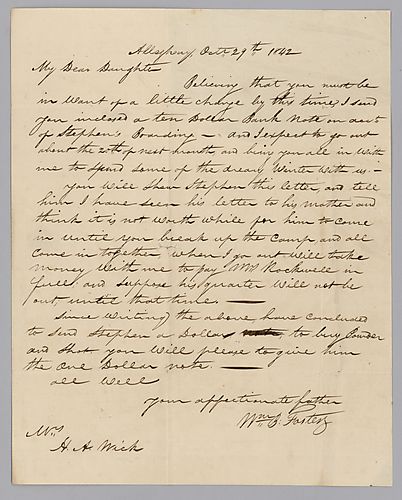 Allegheny Oct. 29th 1842
My Dear Daughter
Believing that you must be
in want of a little change by this time, I send
you inclosed a ten Dollar Bank Note on acct
of Stephen's Boarding — and I expect to go out
about the 20th of next month and bring you all in with
me to spend some of the dreary Winter with us. —
You will shew Stephen this letter, and tell
him I have seen his letter to his mother and
think it is not worth while for him to come
in until you break up the camp and all
come in together when I go out will take
money with me to pay Mr Rockwell in
full and suppose his quarter will not be
out until that time. —
Since writing the above have concluded
to send Stephen a Dollar to buy Powder
and Shot you will please to give him
the One Dollar note. —
all well
your affectionate father
Wm. B. Foster
Mrs
H. A. Wick